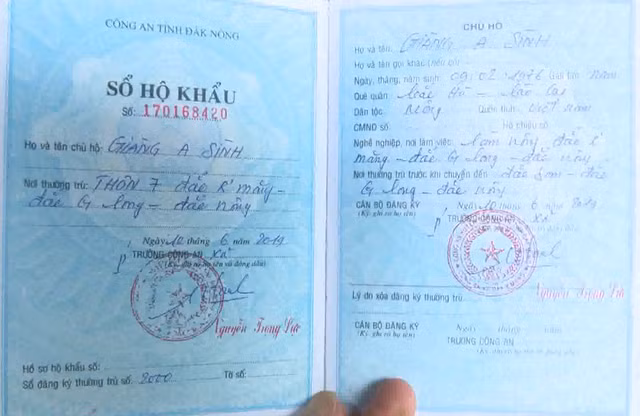 CÔNG AN TỈNH ĐĂK NÔNG
SỔ HỘ KHẨU
Số: 170168420
Họ và tên chủ hộ: GIÀNG A SÌNH
Nơi thường trú: THÔN 7 đắc R'măng -
đắc G long - đắc nông
Ngày 10 tháng 6 năm 2019
TRƯỞNG CÔNG AN Xã
(Ký, ghi rõ họ tên và đóng dấu)
Nguyễn Trọng
Hồ sơ hộ khẩu số:
Sổ đăng ký thường trú số: Tờ số:
CHỦ HỘ
Họ và tên: GIÀNG A SÌNH
Họ và tên gọi khác (nếu có):
Ngày, tháng, năm sinh: 09.02.1976 Giới tính: nam
Quê quán: bắc Hà - lào cai
Dân tộc: Mông Quốc tịch: việt nam
CMND số: Hộ chiếu số:
Nghề nghiệp, nơi làm việc: làm nông đắc R'
măng - đắc G long - đắc nông
Nơi thường trú trước khi chuyển đến: đắc Som - đắc
G long - đắc nông
Ngày 10 tháng 6 năm 2019
CÁN BỘ ĐĂNG KÝ
(Ký, ghi rõ họ tên)
TRƯỞNG CÔNG AN Xã
Nguyễn Trọng
Lý do xóa đăng ký thường trú:
Ngày tháng năm
CÁN BỘ ĐĂNG KÝ
(Ký, ghi rõ họ tên)
TRƯỞNG CÔNG AN
(Ký, ghi rõ họ tên và đóng dấu)